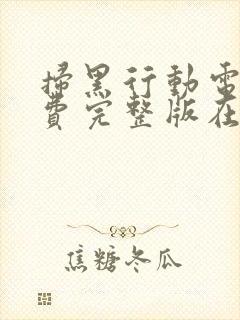 掃黑行動電
費完整版在
焦糖冬瓜